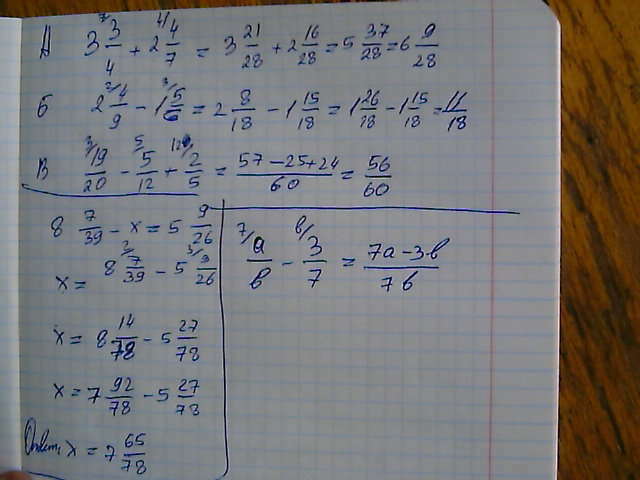 А 3 3/4 (7/ + 2 4/7 (4/ = 3 21/28 + 2 16/28 = 5 37/28 = 6 9/28
Б 2 4/9 (2/ - 1 5/6 (3/ = 2 8/18 - 1 15/18 = 1 26/18 - 1 15/18 = 11/18
В 19/20 (3/ - 5/12 (5/ + 2/5 (12/ = (57-25+24)/60 = 56/60
8 7/39 - x = 5 9/26
x = 8 7/39 (2/ - 5 9/26 (3/
x = 8 14/78 - 5 27/78
x = 7 92/78 - 5 27/78
Ответ, x = 7 65/78
a/b (7/ - 3/7 (b/ = (7a-3b)/7b